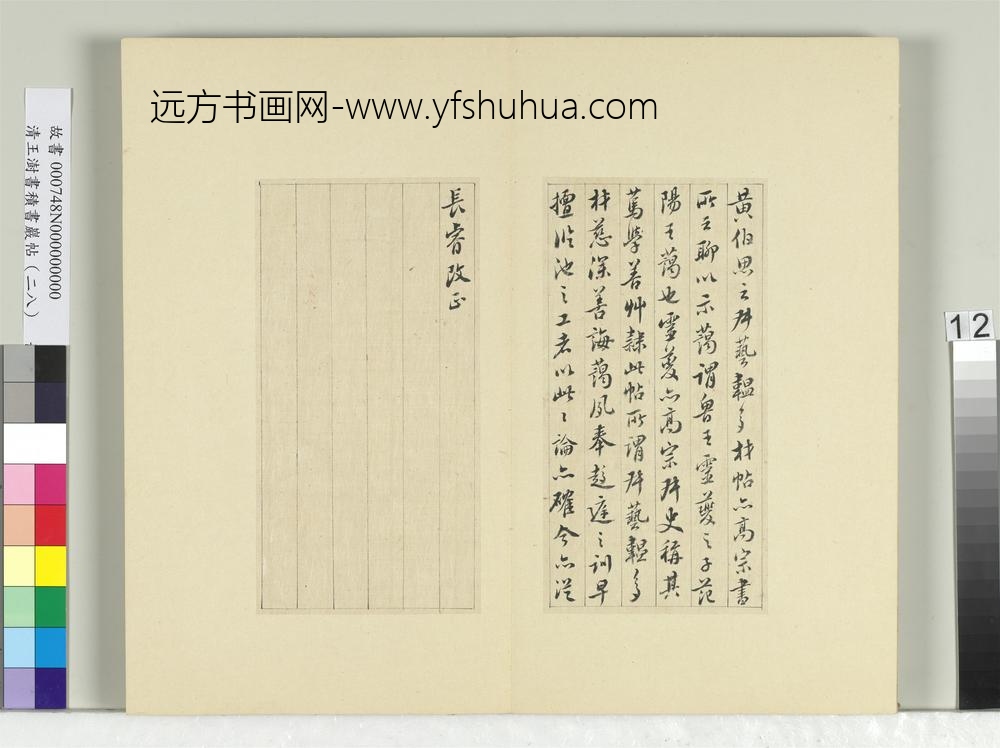 远方书画网-www.yfshuhua.com
故書 000748N000000000
清王澍書積書巖帖（二八）
12
黃伯思云叔藝韞多材帖亦高宗書
所云聊以示藹謂魯王靈夔之子范
陽王藹也靈夔亦高宗叔史稱其
篤學善艸隸此帖所謂叔藝韞多
材慈深善誨藹夙奉趍庭之訓早
擅臨池之工者以此此論亦確今亦從
長睿改正